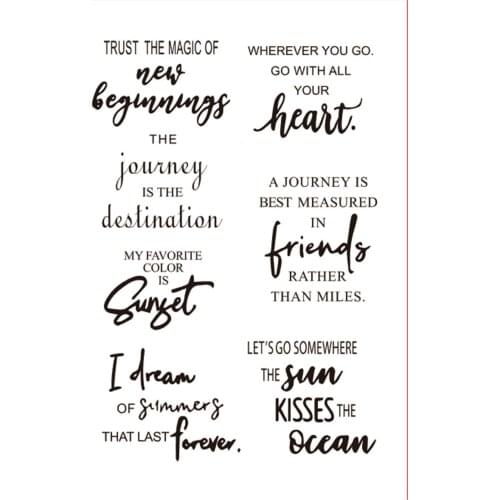 TRUST THE MAGIC OF
new
beginnings
THE
journey
IS THE
destination
MY FAVORITE
COLOR
IS
Sunset
I dream
OF summers
THAT LAST forever.
WHEREVER YOU GO.
GO WITH ALL
YOUR
heart.
A JOURNEY IS
BEST MEASURED
IN
friends
RATHER
THAN MILES.
LET'S GO SOMEWHERE
THE sun
KISSES THE
Ocean